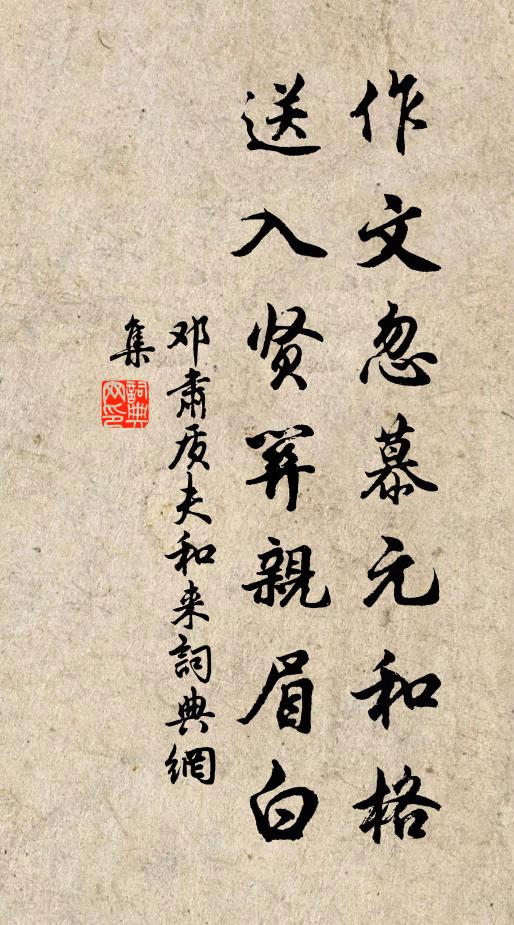 作文忽慕元和格
送入贤関親眉白
邓肃质夫和来詞典網
集
詞典
网印